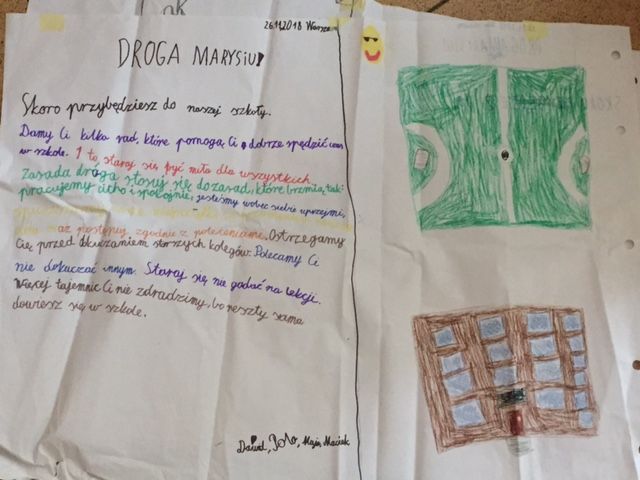 26.11.2018 Warsza
DROGA MARYSIU!
Skoro przybędziesz do naszej szkoły.
Damy Ci kilka rad, które pomogą Ci dobrze spędzić czas
w szkole. 1 to, staraj się być miła dla wszystkich.
Zasada druga stosuj się do zasad, które brzmią tak:
pracujemy cicho i spokojnie, jesteśmy wobec siebie uprzejmi,
zgodnie z poleceniami. Ostrzegamy
Cię przed dokuczaniem starszych kolegów. Polecamy Ci
nie dokuczać innym. Staraj się nie gadać na lekcji.
Więcej tajemnic Ci nie zdradzimy, bo reszty sama
dowiesz się w szkole.
Dawid, Maja, Maciek